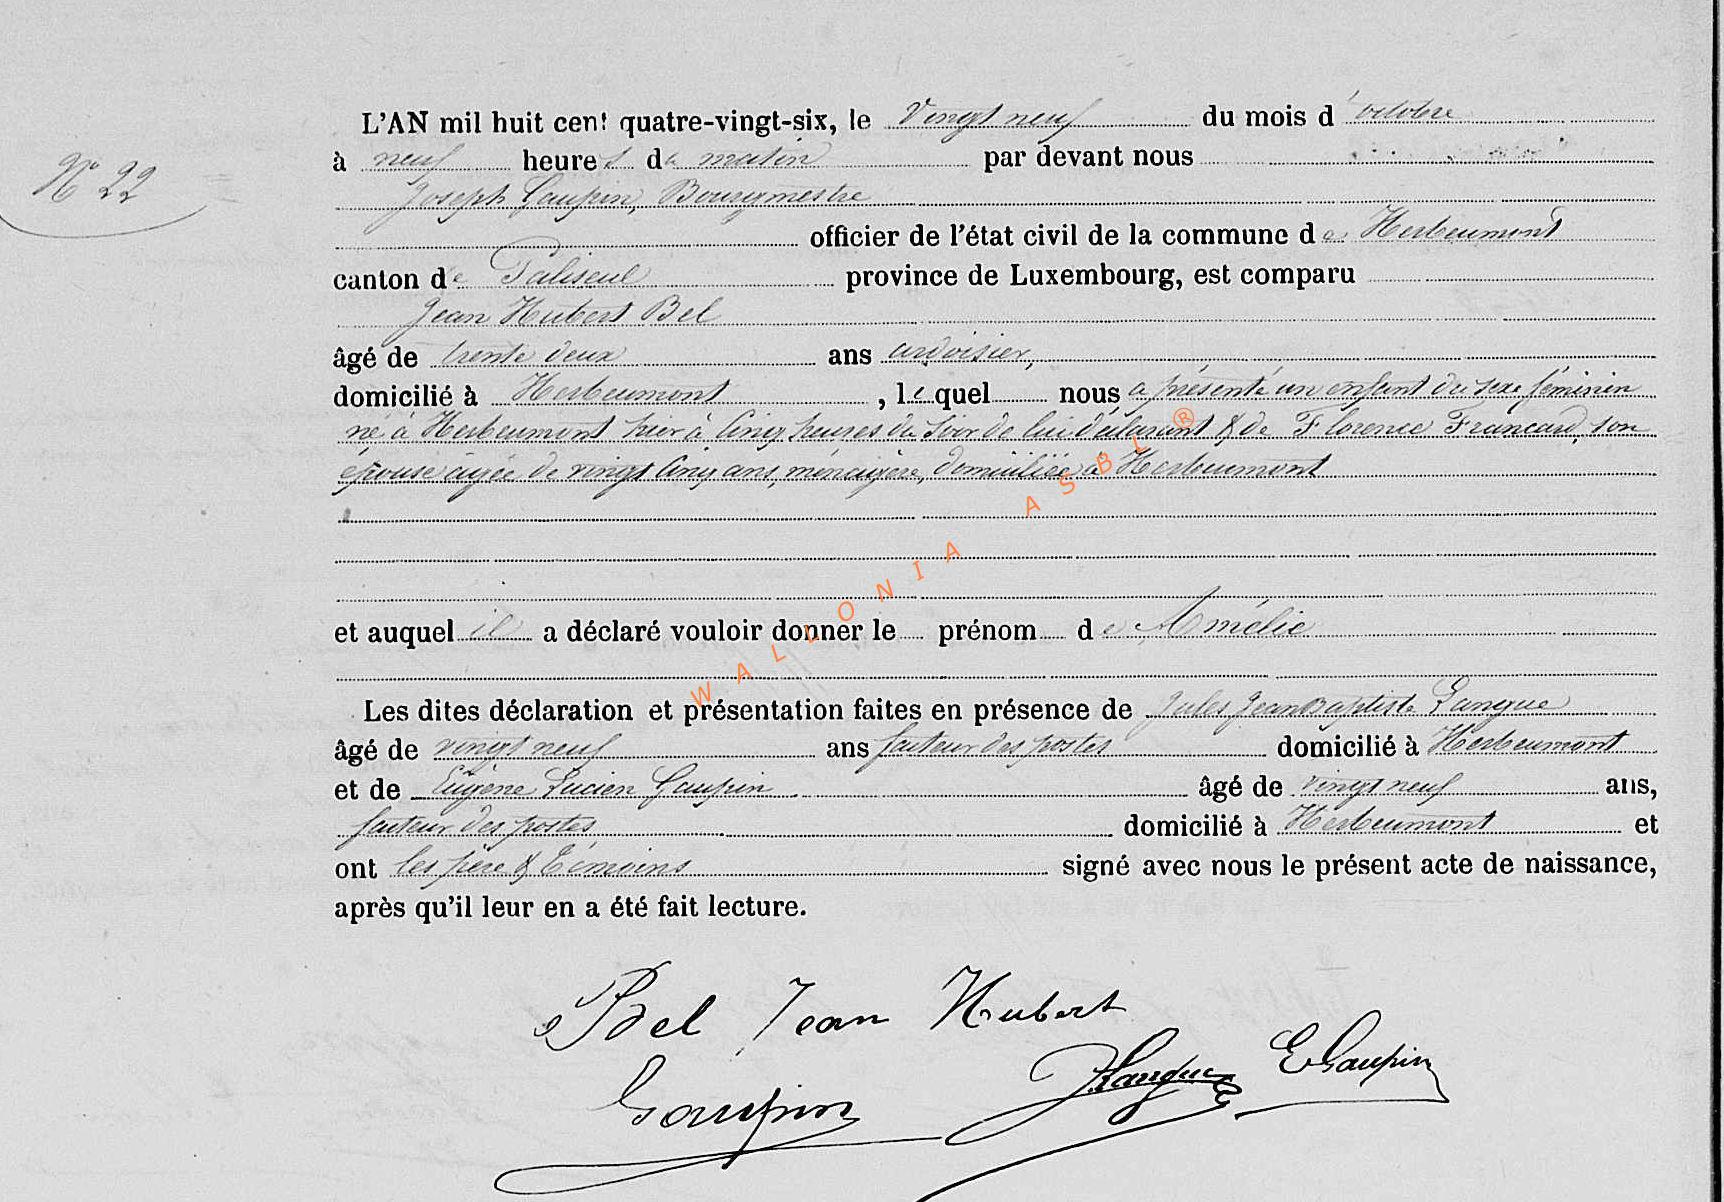 N° 22
L'AN mil huit cent quatre-vingt-six, le Vingt neuf du mois d'octobre
à neuf heures du matin par devant nous
Joseph Gaupin, Bourgmestre
officier de l'état civil de la commune de Herbeumont
canton de Paliseul province de Luxembourg, est comparu
Jean Hubert Bel
âgé de trente deux ans ardoisier,
domicilié à Herbeumont, lequel nous a présenté un enfant du sexe féminin
né à Herbeumont hier à Cinq heures du Soir de lui déclarant & de Florence Francard, son
épouse âgée de vingt Cinq ans, ménagère, domiciliée à Herbeumont
et auquel il a déclaré vouloir donner le prénom de Amélie
Les dites déclaration et présentation faites en présence de Jules Jean Baptiste Langue
âgé de vingt neuf ans facteur des postes domicilié à Herbeumont
et de Eugène Lucien Gaupin âgé de vingt neuf ans,
facteur des postes domicilié à Herbeumont et
ont les père & témoins signé avec nous le présent acte de naissance,
après qu'il leur en a été fait lecture.
Bel Jean Hubert
Gaupin JLangue EGaupin
WALLONIA ASBL ®